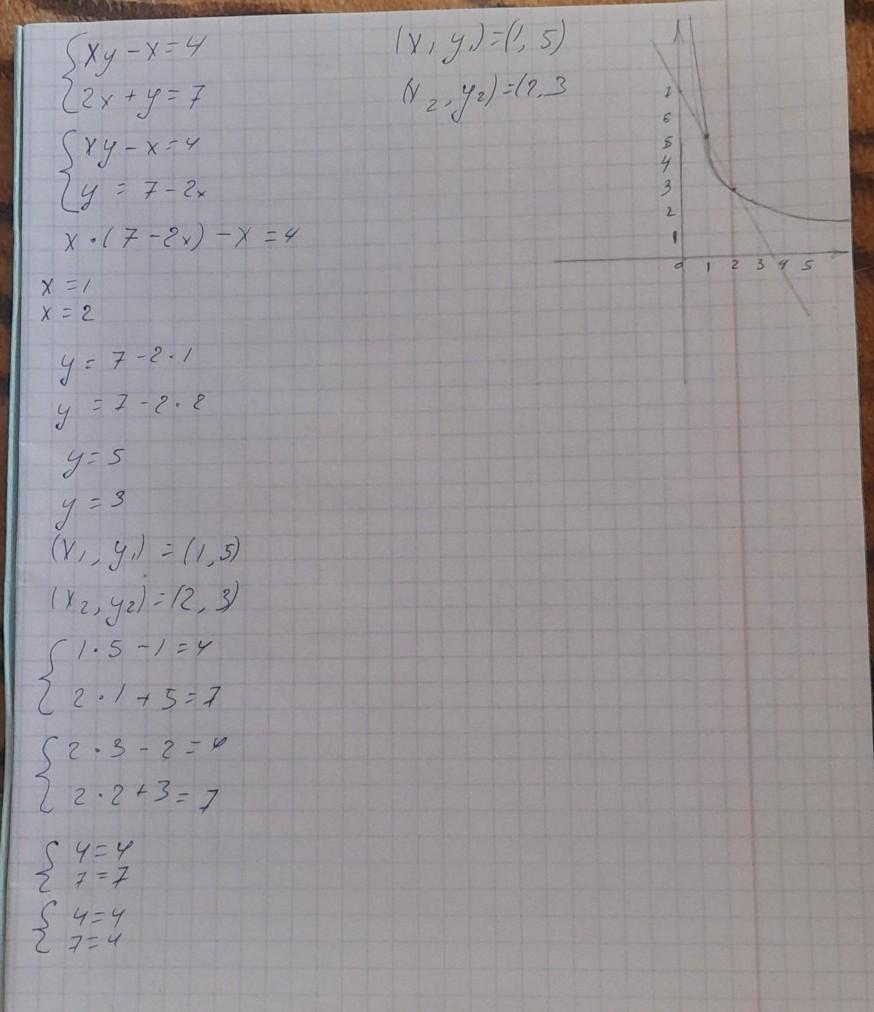 xy - x = 4
2x + y = 7
xy - x = 4
y = 7 - 2x
x · (7 - 2x) - x = 4
x = 1
x = 2
y = 7 - 2 · 1
y = 7 - 2 · 2
y = 5
y = 3
(x₁, y₁) = (1, 5)
(x₂, y₂) = (2, 3)
1 · 5 - 1 = 4
2 · 1 + 5 = 7
2 · 3 - 2 = 4
2 · 2 + 3 = 7
4 = 4
7 = 7
4 = 4
7 = 4
(x, y₁) = (1, 5)
(x₂, y₂) = (2, 3
7
6
5
4
3
2
1
0 1 2 3 4 5